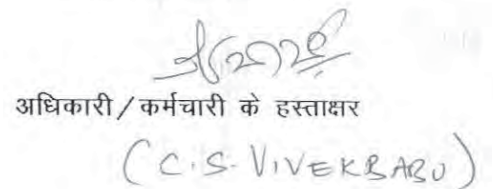 अधिकारी/कर्मचारी के हस्ताक्षर
(C.S. VIVEKBABU)